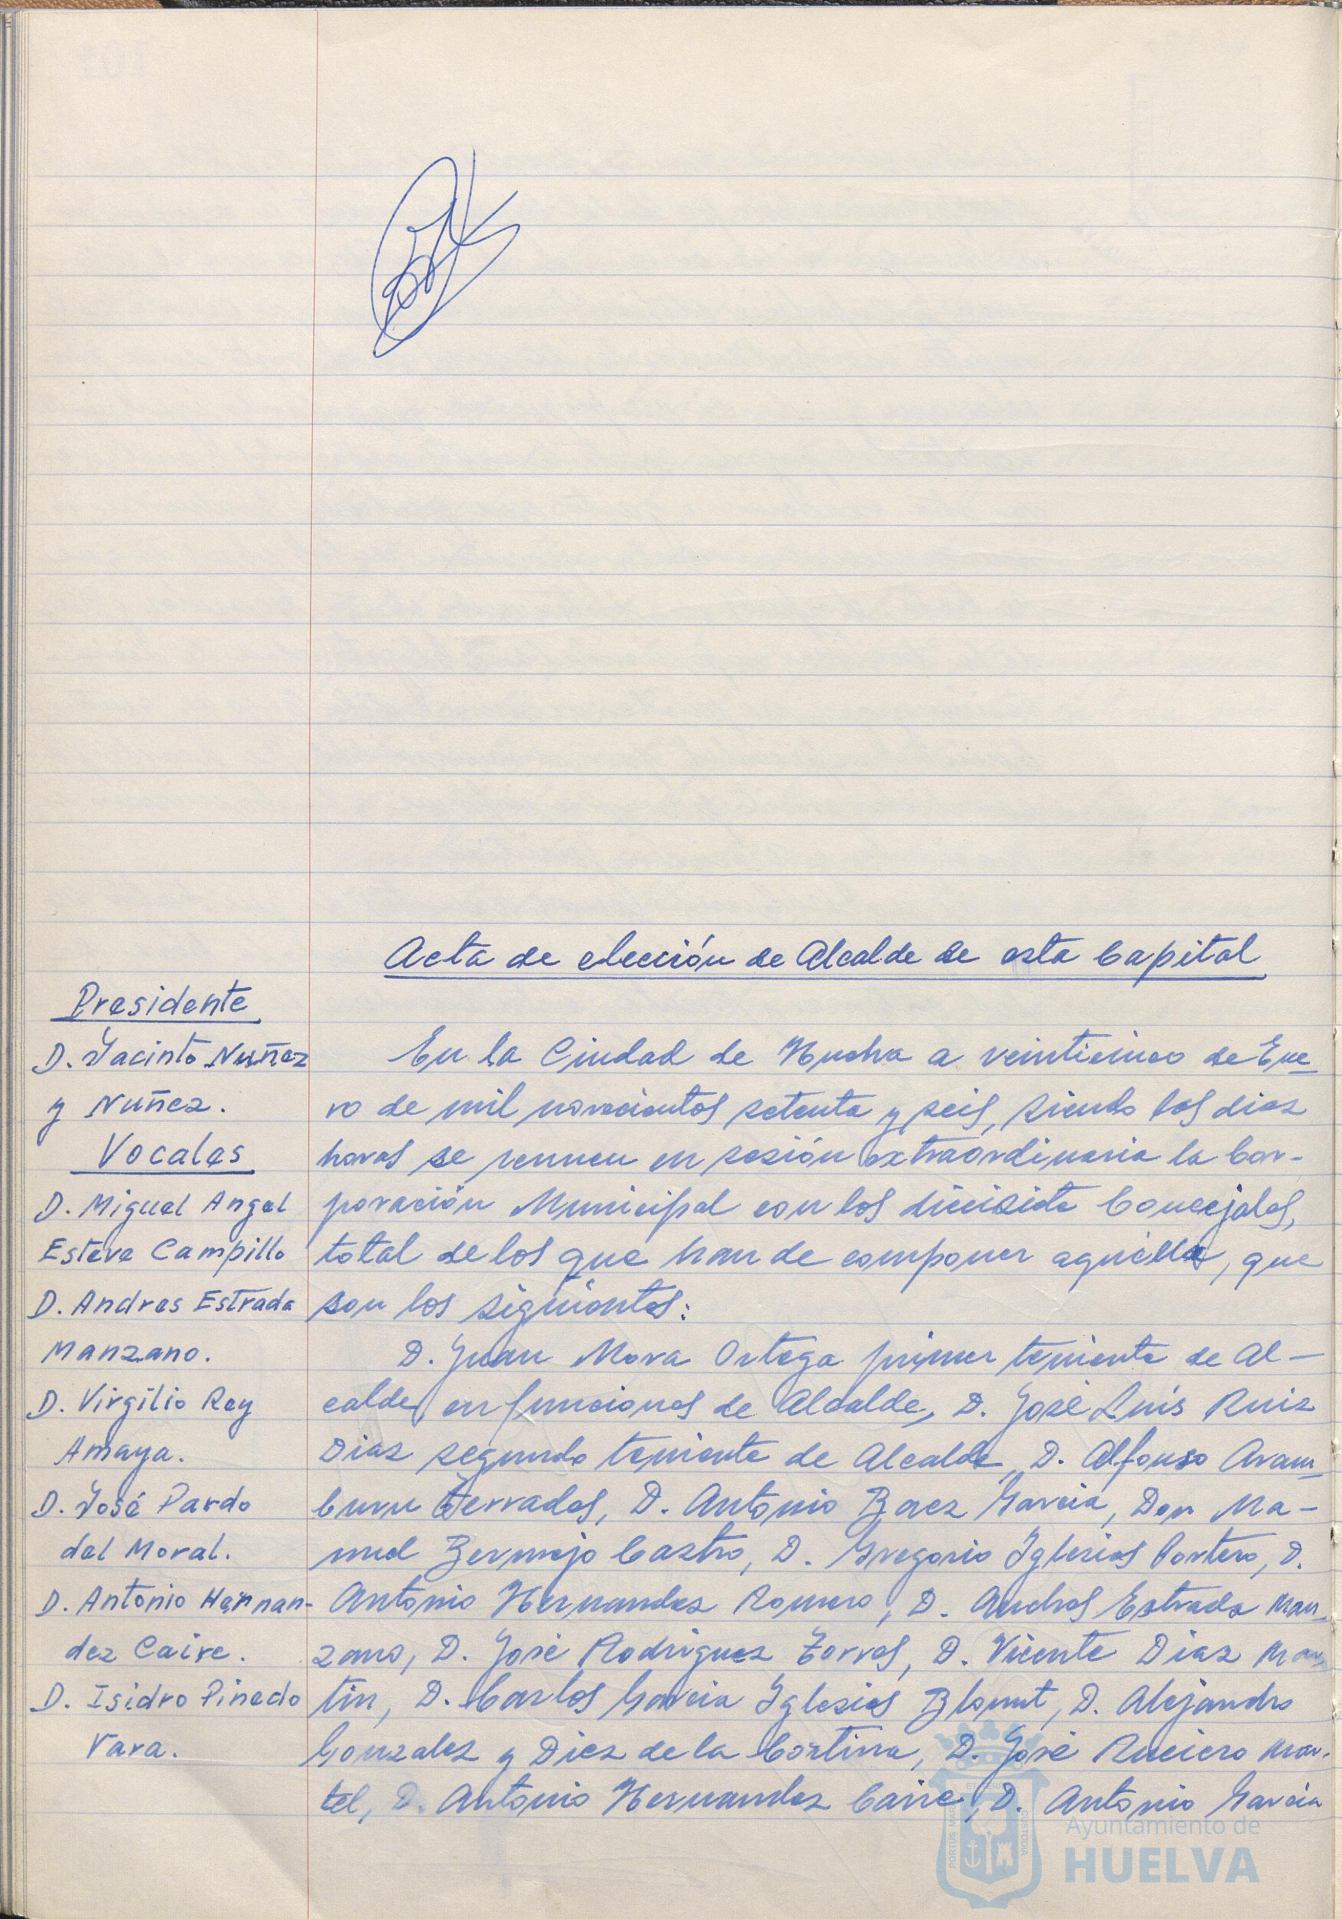 Acta de elección de Alcalde de esta Capital
Presidente
D. Jacinto Nuñez
y Nuñez.
Vocales
D. Miguel Angel
Esteve Campillo
D. Andres Estrada
Manzano.
D. Virgilio Rey
Amaya.
D. José Pardo
del Moral.
D. Antonio Hernan-
dez Caire.
D. Isidro Pinedo
Vara.
En la Ciudad de Huelva a veinticinco de Ene
ro de mil novecientos setenta y seis, siendo las diez
horas se reunen en sesión extraordinaria la Cor-
poración Municipal con los diecisiete Concejales,
total de los que han de componer aquélla, que
son los siguientes:
D. Juan Mora Ortega primer teniente de Al-
calde, en funciones de Alcalde, D. José Luis Ruiz
Diaz segundo teniente de Alcalde, D. Alfonso Aram
buru Terrades, D. Antonio Baez Garcia, Don Ma-
nuel Bermejo Castro, D. Gregorio Iglesias Portero, D.
Antonio Hernandez Romero, D. Andres Estrada Man
zano, D. José Rodriguez Torres, D. Vicente Diaz Mar
tin, D. Carlos Garcia Iglesias Blount, D. Alejandro
Gonzalez y Diez de la Cortina, D. José Ruciero Mar-
tel, D. Antonio Hernandez Caire, D. Antonio Garcia
Ayuntamiento de
HUELVA
PORTUS MARIS
CUSTODIA